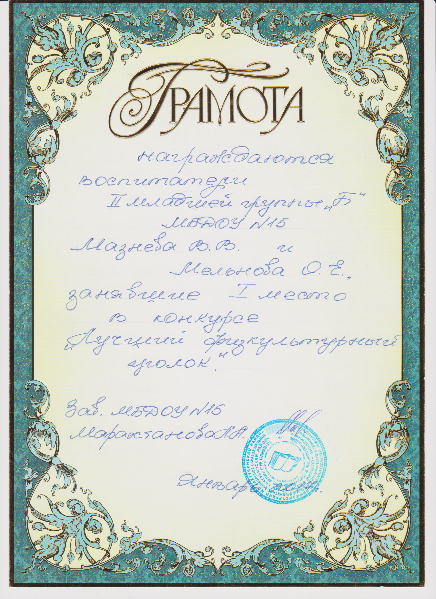 ГРАМОТА
награждаются
воспитатели
II младшей группы „Б"
МБДОУ N15
Мазнева В.В. и
Мельнова О.Е.,
занявшие I место
в конкурсе
„Лучший физкультурный
уголок."
Зав. МБДОУ N15
Январь